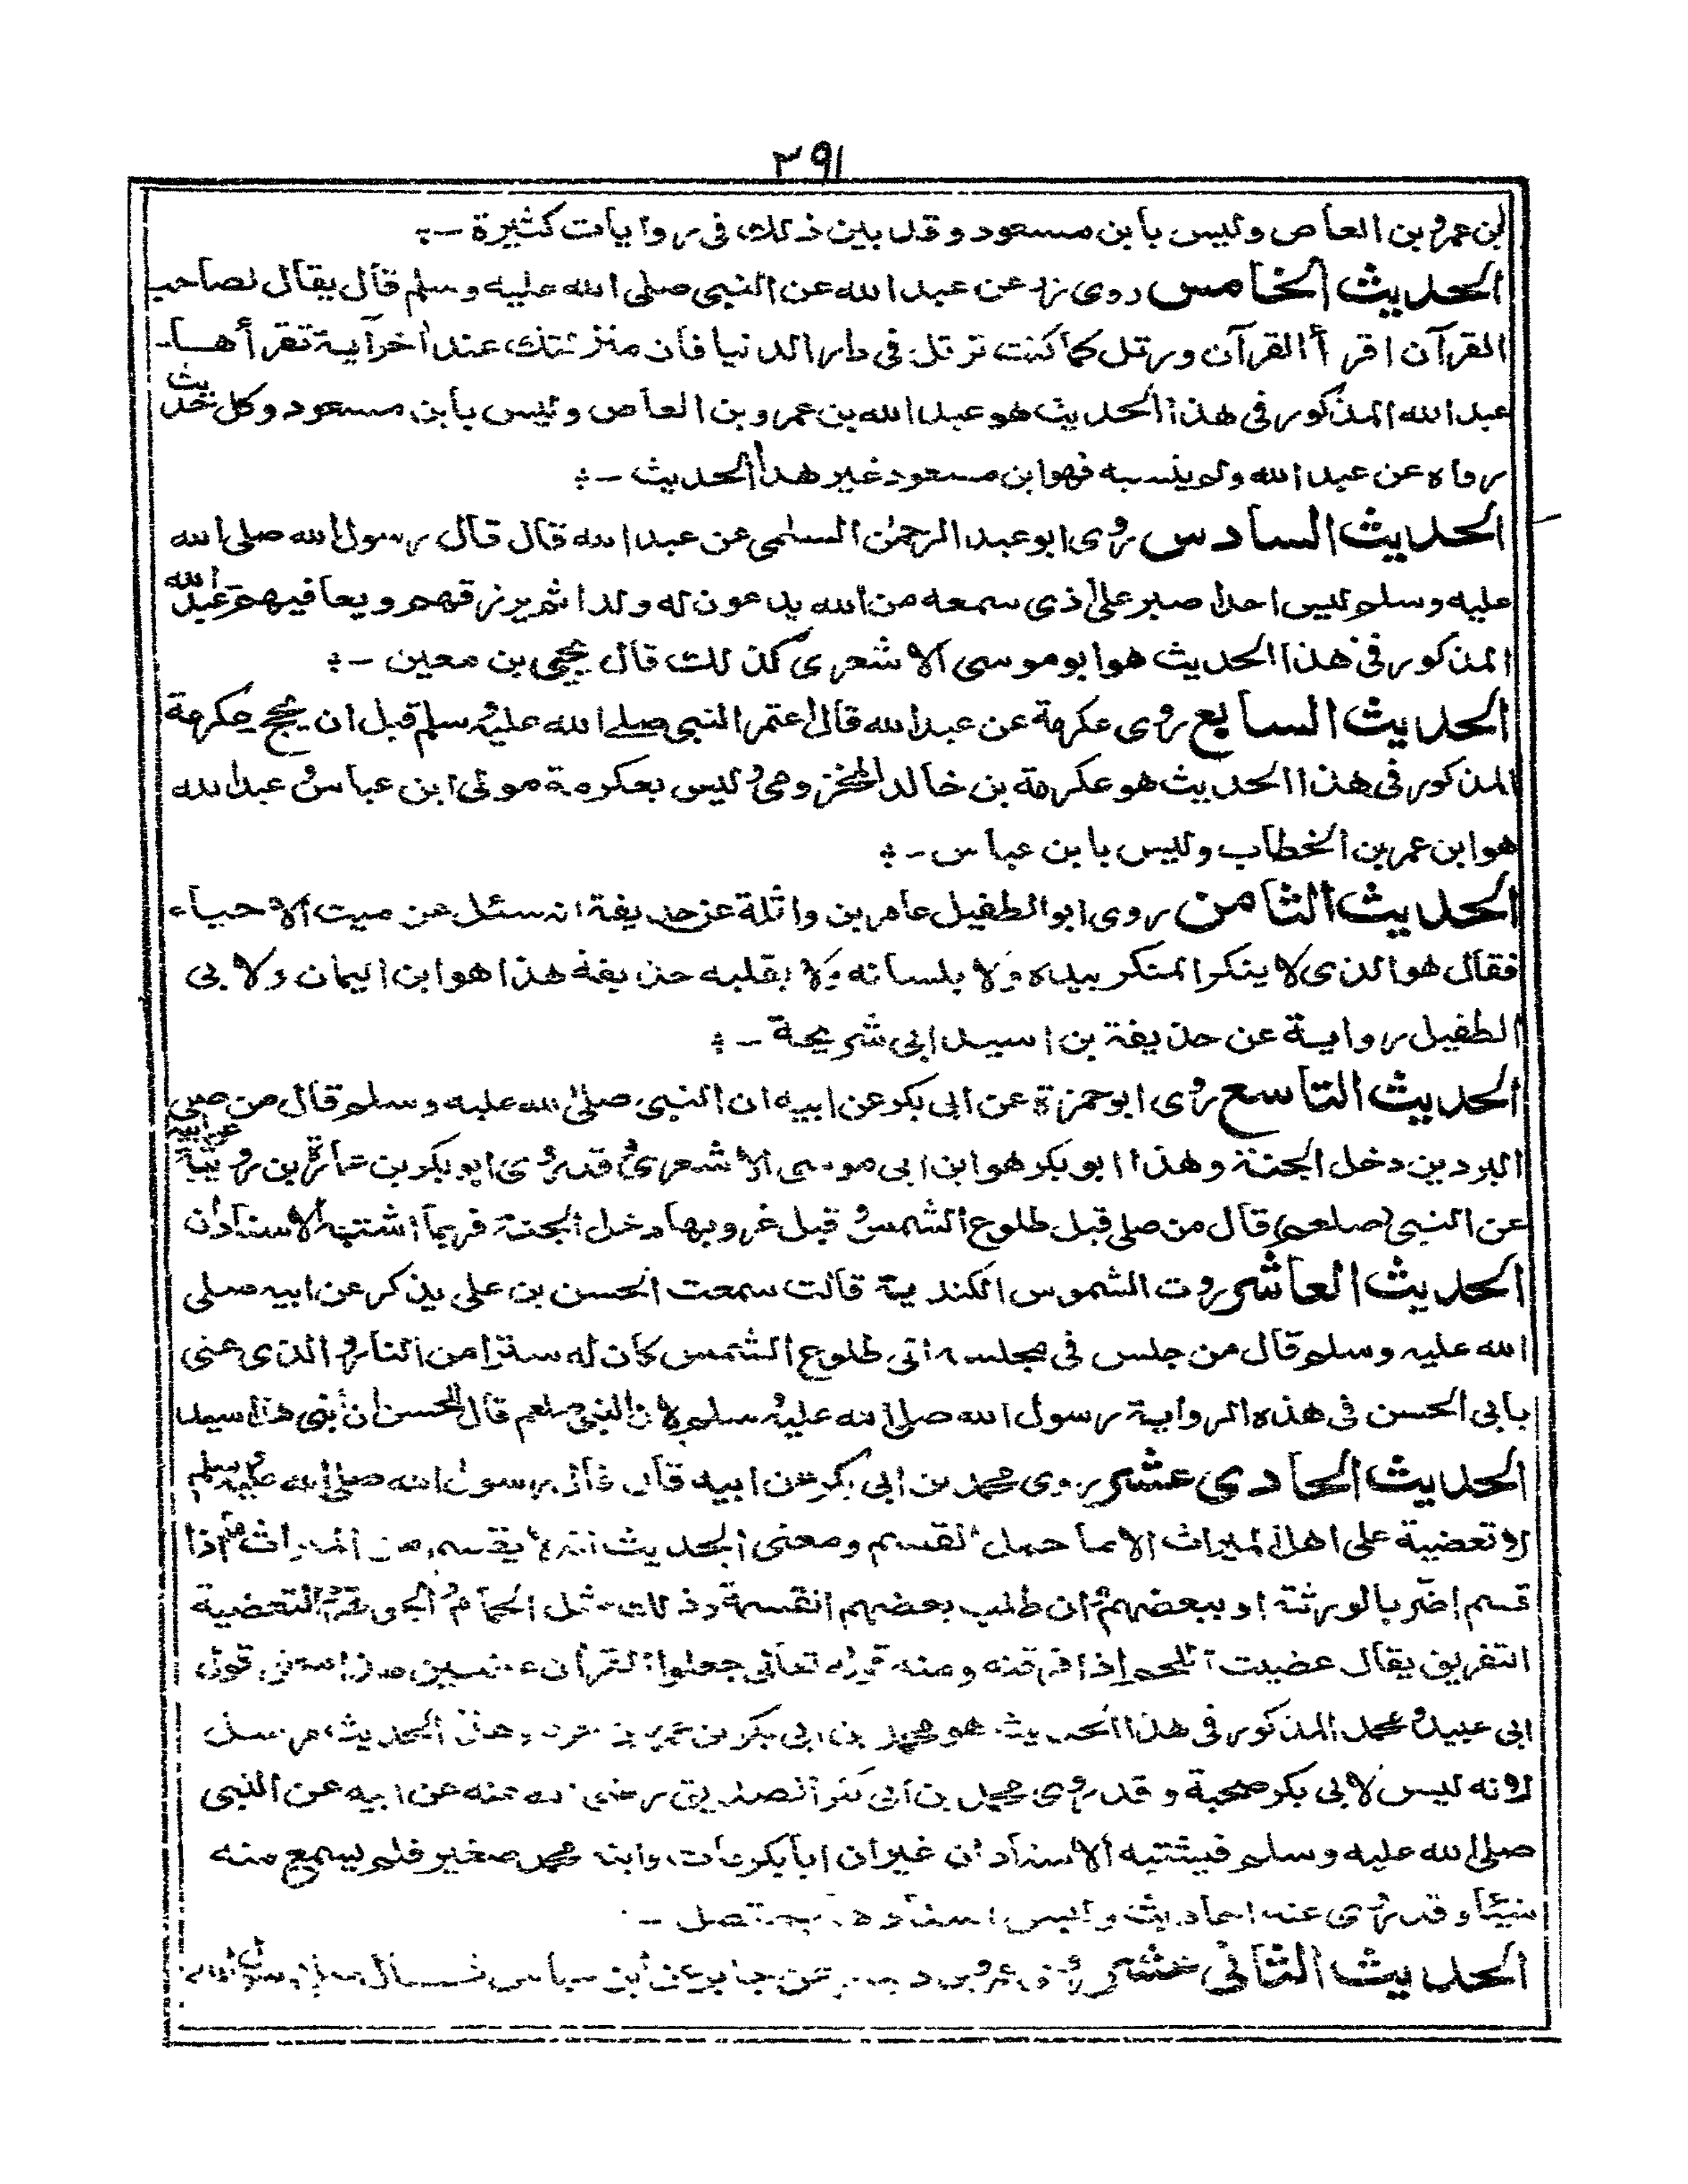 ٣٩١
ابن عمرو بن العاص وليس بابن مسعود وقد بين ذلك فى روايات كثيرة -
الحديث الخامس روى زر عن عبد الله عن النبى صلى الله عليه وسلم قال يقال لصاحب
القرآن اقرأ القرآن ورتل كما كنت ترتل فى دار الدنيا فان منزلتك عند اخر آية تقرأها -
عبد الله المذكور فى هذا الحديث هو عبد الله بن عمرو بن العاص وليس بابن مسعود وكل حديث
رواه عن عبد الله ولم ينسبه فهو ابن مسعود غير هذا الحديث -
الحديث السادس روى ابو عبد الرحمن السلمى عن عبد الله قال قال رسول الله صلى الله
عليه وسلم ليس احدا صبر على اذى سمعه من الله يدعون له ولدا ثم يرزقهم ويعافيهم وعبد الله
المذكور فى هذا الحديث هو ابو موسى الاشعرى كذلك قال يحيى بن معين -
الحديث السابع روى عكرمة عن عبد الله قال اعتمر النبى صلے الله عليه وسلم قبل ان يحج عكرمة
المذكور فى هذا الحديث هو عكرمة بن خالد المخزومى وليس بعكرمة مولى ابن عباس وعبد الله
هو ابن عمر بن الخطاب وليس بابن عباس -
الحديث الثامن روى ابو الطفيل عامر بن واثلة عن حذيفة انه سئل عن ميت الاحياء
فقال هو الذى لا ينكر المنكر بيده ولا بلسانه ولا بقلبه حذيفة هذا هو ابن اليمان ولابى
الطفيل رواية عن حذيفة بن اسيد ابى شريحة -
الحديث التاسع روى ابو حمزة عن ابى بكر عن ابيه ان النبى صلى الله عليه وسلم قال من صلى
البردين دخل الجنة وهذا ابو بكر هو ابن ابى موسى الاشعرى وقد روى ابو بكر بن عمارة بن رويبة عن ابيه
عن النبى (صلعم) قال من صلى قبل طلوع الشمس وقبل غروبها دخل الجنة فربما اشتبه الاسنادان
الحديث العاشر روت الشموس الكندية قالت سمعت الحسن بن على يذكر عن ابيه صلى
الله عليه وسلم قال من جلس فى مجلسه الى طلوع الشمس كان له سترا من النار والذى عنى
بابى الحسن فى هذه الرواية رسول الله صلى الله عليه وسلم لان النبى صلعم قال للحسن ان ابنى هذا سيد
الحديث الحادى عشر روى محمد بن ابى بكر عن ابيه قال قال رسول الله صلى الله عليه وسلم
لا تعضية على اهل الميراث الا ما حمل القسم ومعنى الحديث انه لا يقسم من الميراث ما اذا
قسم اضر بالورثة او ببعضهم وان طلب بعضهم القسمة وذلك مثل الحمام والجوهرة والتعضية
التفريق يقال عضيت اللحم اذا فرقته ومنه قوله تعالى جعلوا القرآن عضين هذا معنى قول
ابى عبيد ومحمد المذكور فى هذا الحديث هو محمد بن ابى بكر بن وهذا الحديث مرسل
لانه ليس لابى بكر صحبة وقد روى محمد بن ابى بكر الصديق رضى الله عنه عن ابيه عن النبى
صلى الله عليه وسلم فيشتبه الاسنادان غير ان ابا بكر مات وابنه محمد صغير فلم يسمع منه
شيئا وقد روى عنه احاديث وليس اسنادها بمتصل -
الحديث الثانى عشر روى عمرو بن عن جابر عن ابن عباس